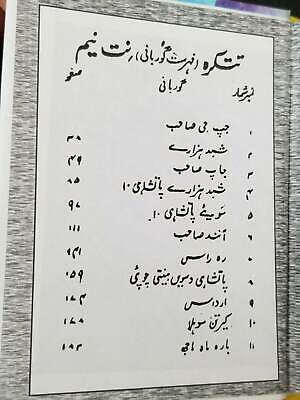 تتکرہ (فہرست گوربانی) نت نیم
نمبر شمار گوربانی صفحہ
۱ جپ جی صاحب
۲ شبد ہزارے ۳۸
۳ جاپ صاحب ۴۹
۴ شبد ہزارے پاتشاہی ۱۰ ۸۵
۵ سَویّئے پاتشاہی ۱۰ ۹۷
۶ آنند صاحب ۱۱۱
۷ رہ راس ۱۴۱
۸ پاتشاہی دسویں بینتی چوپئی ۱۵۹
۹ ارداس ۱۷۳
۱۰ کیرتن سوہلا ۱۷۸
۱۱ بارہ ماہ مانجھ ۱۸۴